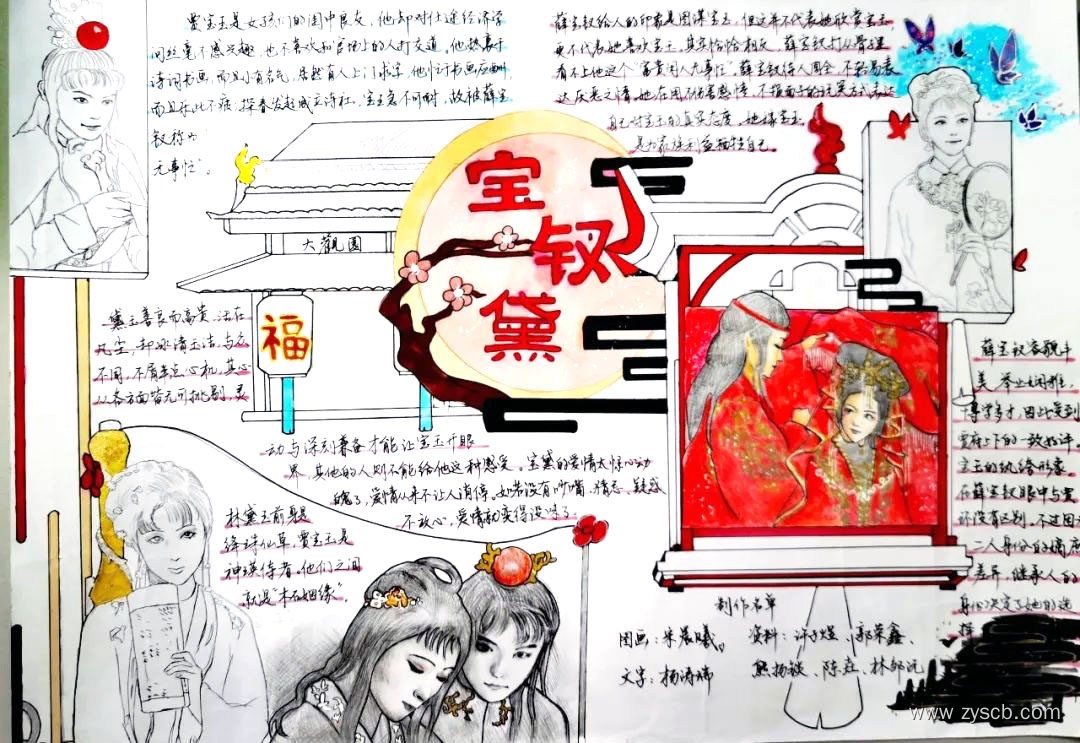 贾宝玉是女孩们的闺中良友，他却对仕途经济学
问丝毫不感兴趣，也不喜欢和官场上的人打交道。他热衷于
诗词书画，而且小有名气，居然有人上门求字，他忙于书画应酬，
而且乐此不疲，探春发起成立诗社，宝玉急不可耐，故被薛宝
钗称为
无事忙"。
薛宝钗给人的印象是图谋宝玉，但这并不代表她欣赏宝玉，
更不代表她喜欢宝玉。其实恰恰相反，薛宝钗打从骨里
看不上他这个"富贵闲人无事忙"薛宝钗待人周全，不容易表
达厌恶之情，她在用不伤害感情，不损面子的方式表达
自己对宝玉的真实态度。她嫁宝玉，
是为家族利益牺牲自己。
宝
钗
黛
大觀園
福
黛玉善良而高贵，活在
凡尘，却冰清玉洁，与众
不同，不屑半点心机，真心
从各方面皆无可挑剔，灵
动与深刻兼备才能让宝玉开眼
界，其他的人则不能给他这种感受。宝黛的爱情太惊心动
魄了，爱情从来不让人消停。如若没有吵嘴、猜忌、疑惑
不放心，爱情就变得没味了。
林黛玉前身是
绛珠仙草，贾宝玉是
神瑛侍者。他们之间
就是"木石姻缘"。
薛宝钗容貌丰
美，举止娴雅，
博学多才，因此受到
贾府上下的一致好评
宝玉的纨绔形象
在薛宝钗眼中与
环没有区别。不过因为
二人身份的嫡庶
差异，继承人的
身份决定了她的选
择
制作名单
图画：朱晨曦。 资料：许子煜、郭荣鑫、
文字：杨涛瑞 熊扬骏、陈垚、林郁沅
www.zyscb.com